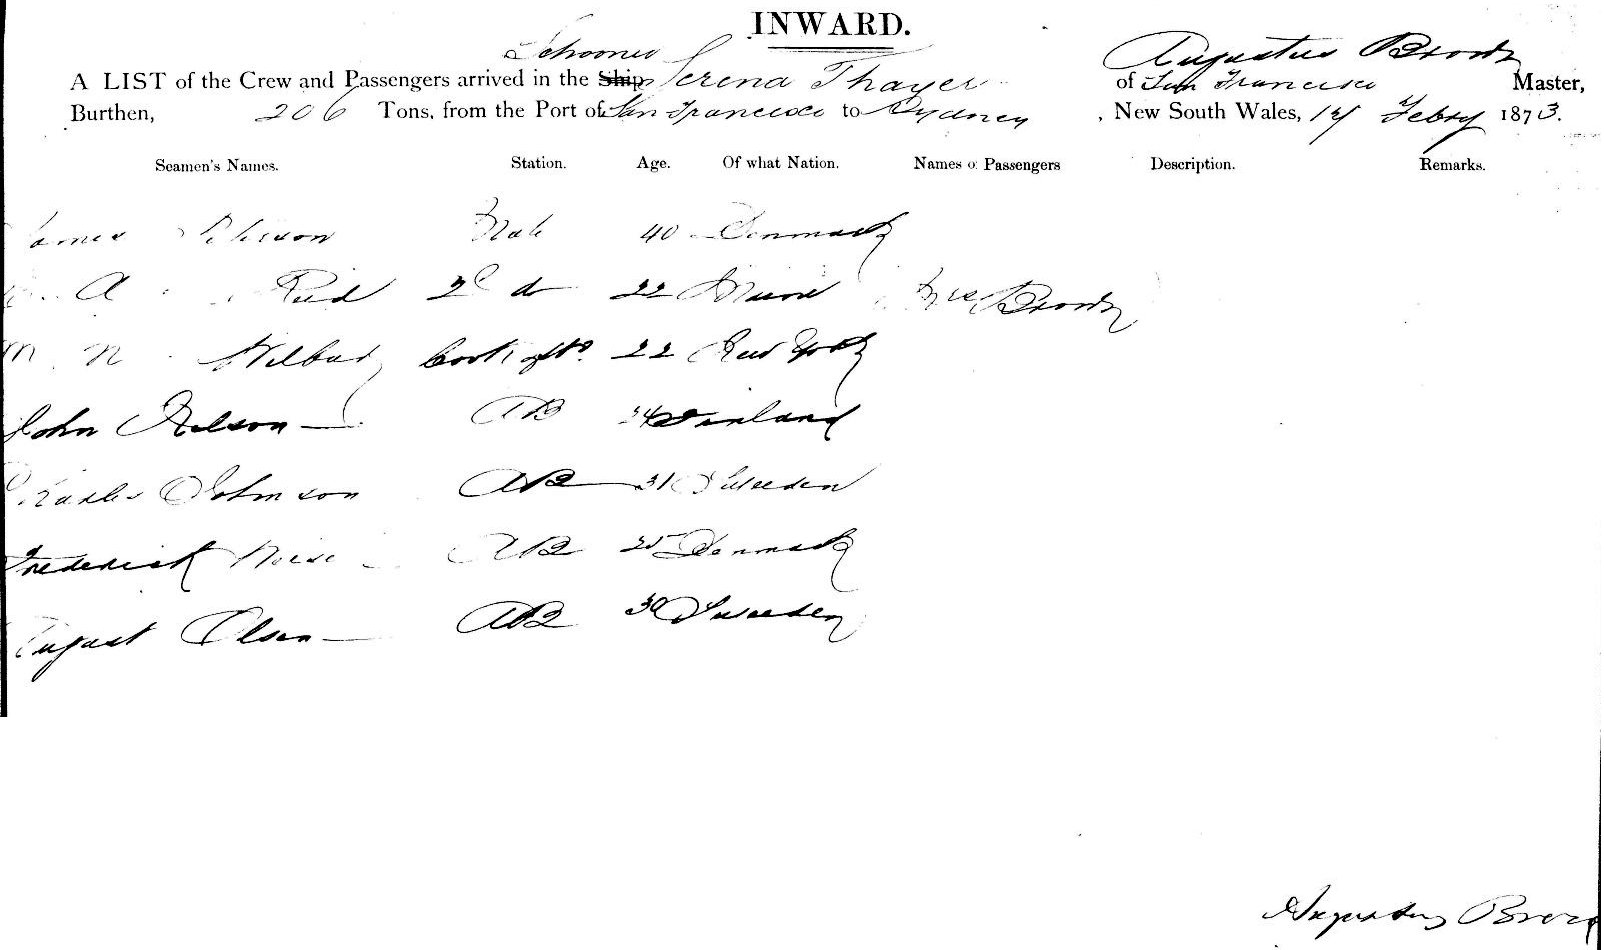 INWARD.
Schooner
A LIST of the Crew and Passengers arrived in the Ship Serena Thayer of San Francisco Augustus Brooks Master,
Burthen, 206 Tons, from the Port of San Francisco to Sydney, New South Wales, 14 Febry 1873.
Seamen's Names. Station. Age. Of what Nation. Names o: Passengers Description. Remarks.
James Mate 40 Denmark
A Reid 2d do 22 Maine Mrs Brooks
M N Wilbur Cook 22 New York
John Nelson AB 34 Finland
Charles Johnson AB 31 Sweeden
Frederick AB 25 Denmark
August Olsen AB 30 Sweeden
Augustus